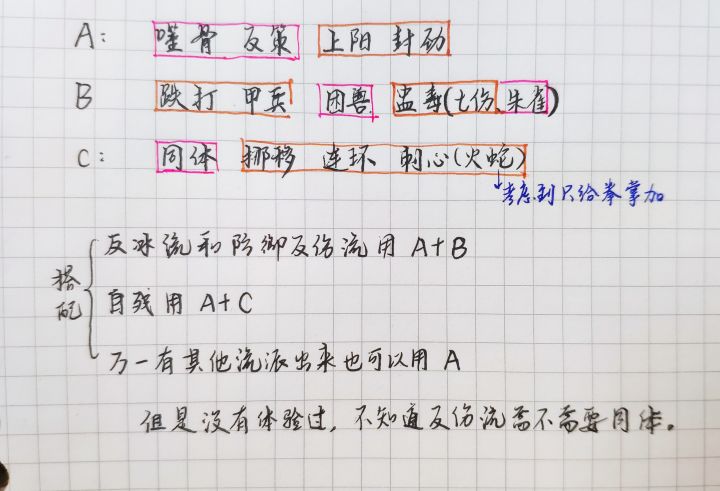 A: 噬骨 反策 上阳 封劲
B 跌打 甲兵 困兽 蛊毒(七伤、朱雀)
C: 同体 挪移 连环 刺心(火蛇)
考虑到只给拳掌加
搭配
反冰流和防御反伤流用A+B
自残用A+C
万一有其他流派出来也可以用A
但是没有体验过,不知道反伤流需不需要同体。